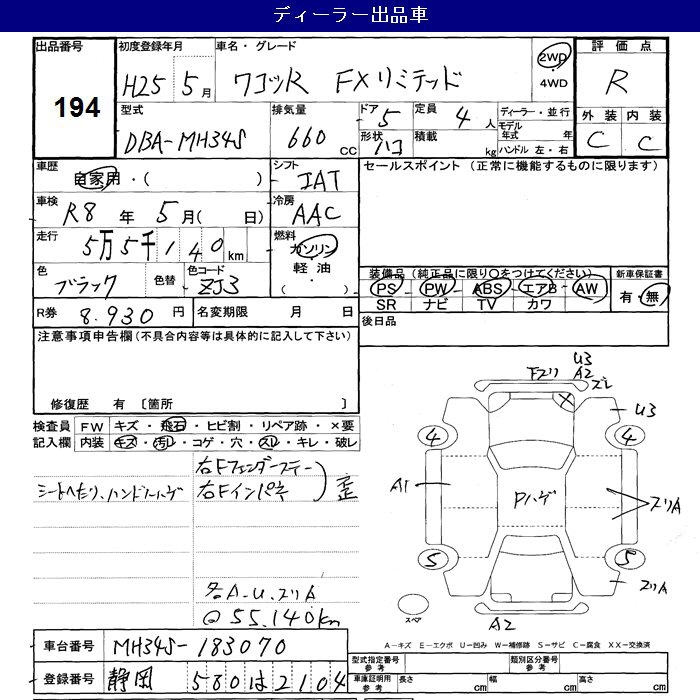 ディーラー出品車
出品番号 初度登録年月 車名・グレード 評価点
194 H25 5月 ワゴンR FXリミテッド 2WD ・4WD R
型式 排気量 ドア 定員 ディーラー・並行 外装 内装
DBA-MH34S 660cc 5 4人 モデル年式 年 C C
形状 ハコ 積載 kg ハンドル 左・右
車歴 自家用・( ) シフト IAT セールスポイント (正常に機能するものに限ります)
車検 R8年 5月( 日) 冷房 AAC
走行 5万5千140km 燃料 ガソリン 軽油 ・( )
色 ブラック 色替 色コード ZJ3 装備品 (純正品に限り○をつけてください) 新車保証書
PS PW ABS エアB AW 有・無
SR ナビ TV カワ
R券 8.930円 名変期限 月 日 後日品
注意事項申告欄(不具合内容等は具体的に記入して下さい)
修復歴 有 〔箇所 〕
検査員 FW キズ・飛石・ヒビ割・リペア跡・×要
記入欄 内装 キズ・汚レ・コゲ・穴・スレ・キレ・破レ
右Fフェンダーステー
シートへたり、ハンドルハゲ 右Fインパネ ) 歪
各A.U.ズリA
@55.140km
Fズリ U3
A2
ズレ
U3
4 4
A1 Pハゲ ズリA
5 5
ズリA
スペア A2
A－キズ E－エクボ U－凹み W－補修跡 S－サビ C－腐食 XX－交換済
車台番号 MH34S-183070
型式指定番号 参考 類別区分番号 参考
登録番号 静岡 580 は 2104
車庫証明用 参考 長さ cm 幅 cm 高さ cm